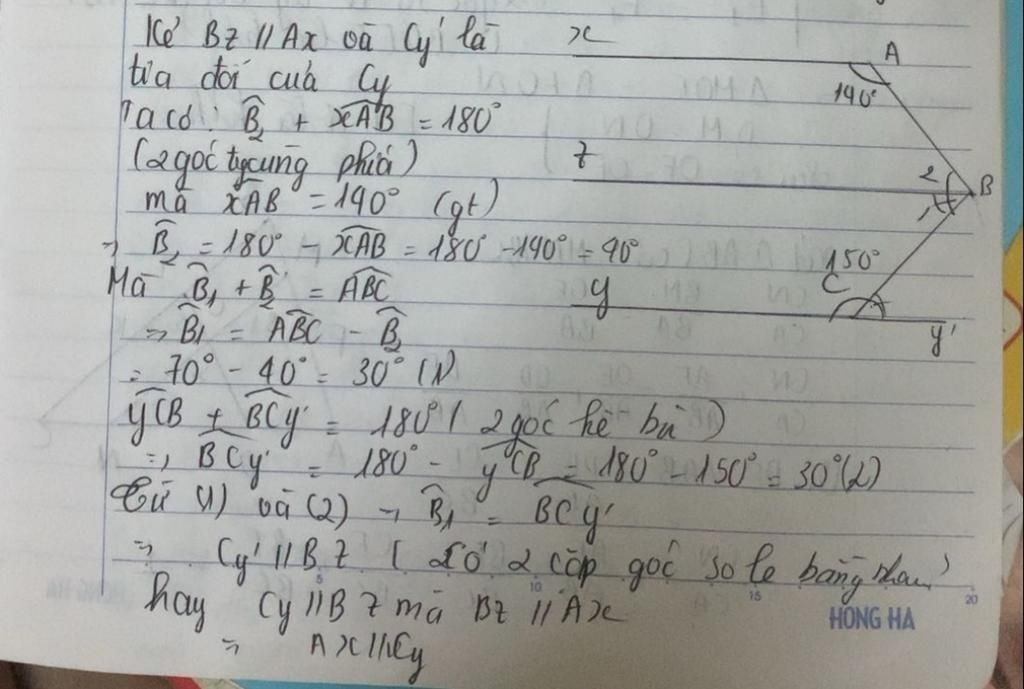 Kẻ Bz // Ax và Cy' là
tia đối của Cy
Ta có: B̂₂ + xAB = 180°
(2 góc tcùng phía)
mà xAB = 140° (gt)
→ B̂₂ = 180° - xAB = 180° - 140° = 40°
Mà B̂₁ + B̂₂ = ABC
⇒ B̂₁ = ABC - B̂₂
= 70° - 40° = 30° (1)
yCB + BCy' = 180° ( 2 góc kề bù )
⇒ BCy' = 180° - yCB = 180° - 150° = 30° (2)
Từ (1) và (2) → B̂₁ = BCy'
⇒ Cy' // Bz ( Có 2 cặp góc so le bằng nhau)
hay Cy // Bz mà Bz // Ax
⇒ Ax // Cy
x
A
140°
z
2
B
1
150°
C
y
y'
5
10
15
20
HONG HA